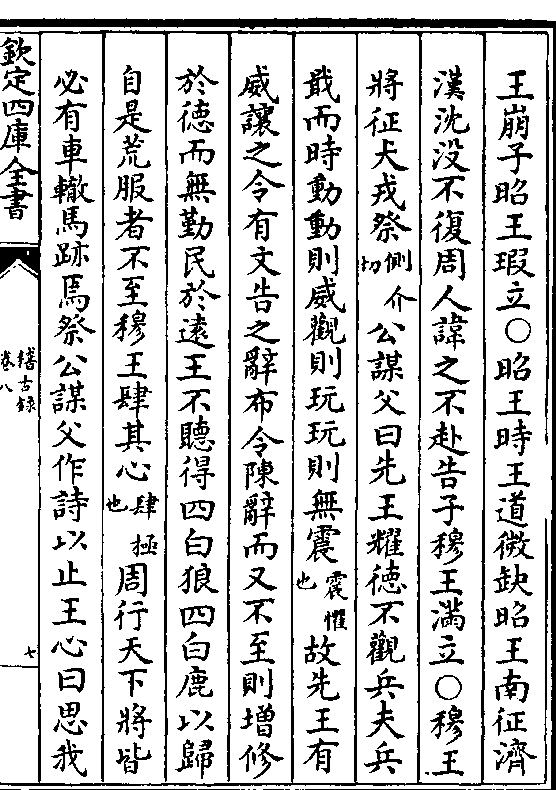 王崩子昭王瑕立○昭王時王道微缺昭王南征濟
漢沈没不復周人諱之不赴告子穆王滿立○穆王
將征犬戎祭側介切公謀父曰先王耀徳不觀兵夫兵
戢而時動動則威觀則玩玩則無震震懼也故先王有
威讓之令有文告之辭布令陳辭而又不至則增修
於徳而無勤民於逺王不聽得四白狼四白鹿以歸
自是荒服者不至穆王肆其心肆極也周行天下將皆
必有車轍馬跡焉祭公謀父作詩以止王心曰思我
欽定四庫全書
稽古録
卷八
七